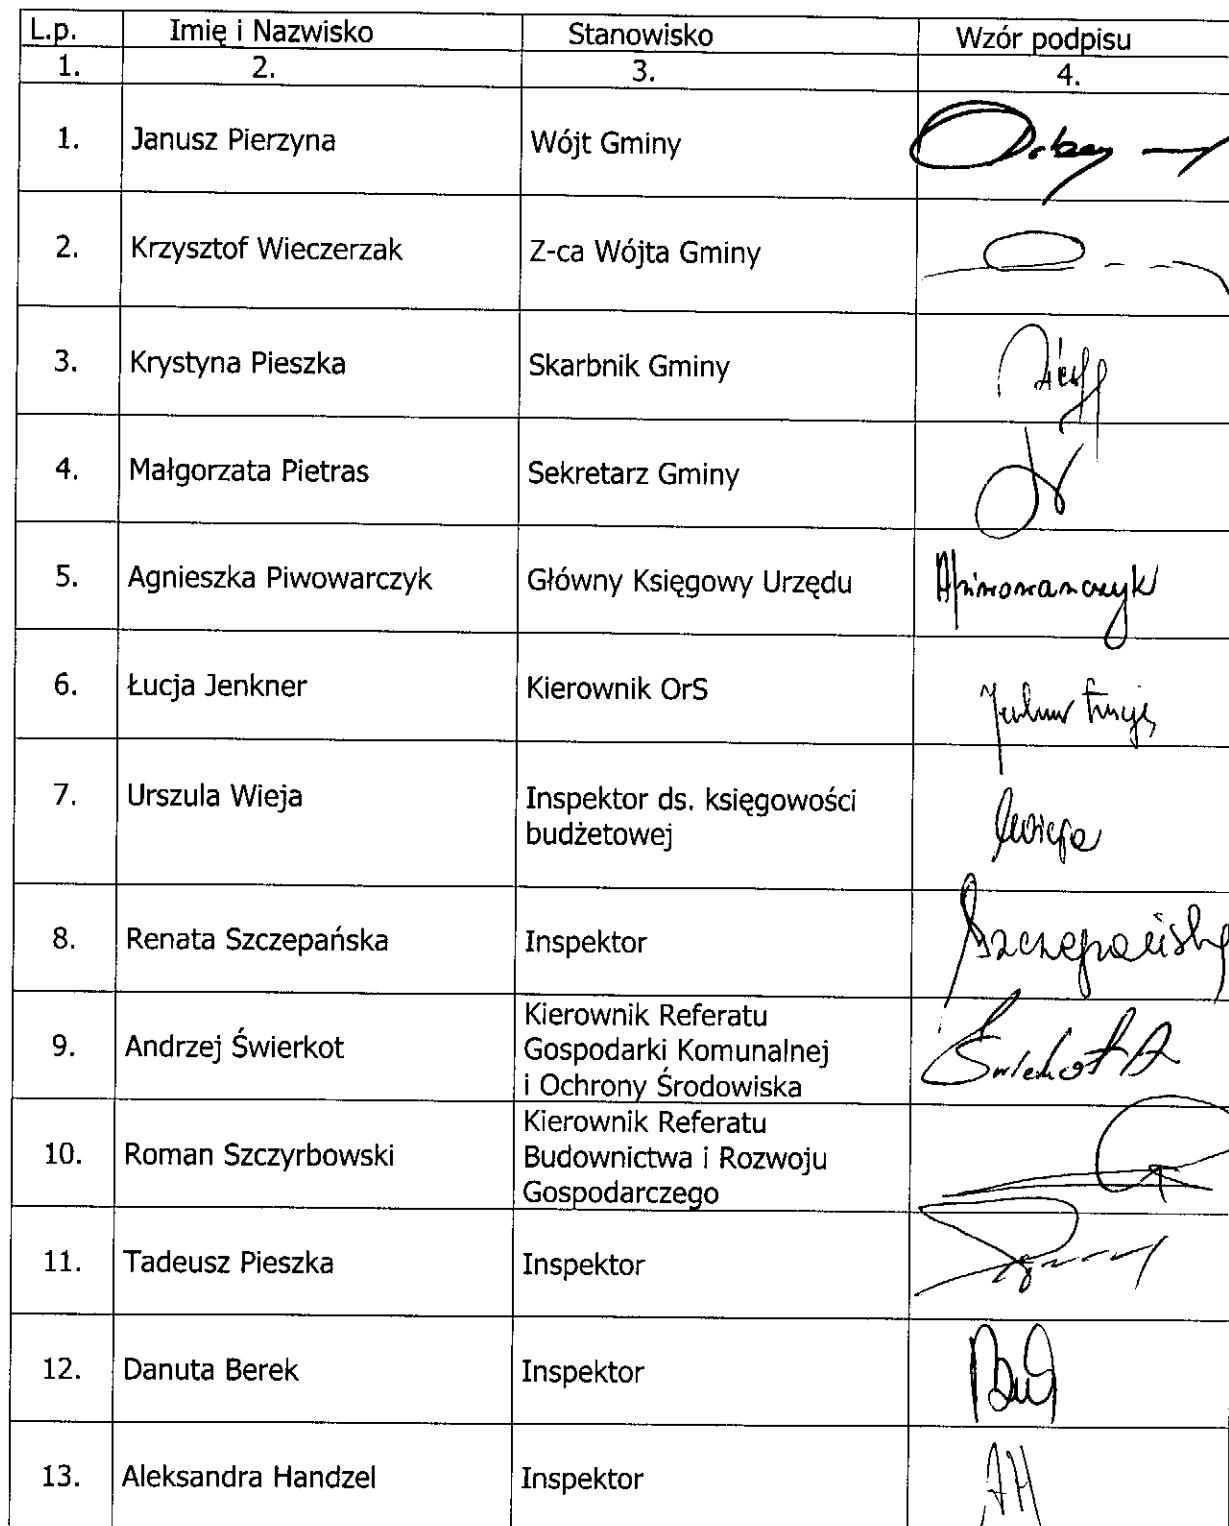 L.p. Imię i Nazwisko Stanowisko Wzór podpisu
1. 2. 3. 4.
1. Janusz Pierzyna Wójt Gminy
2. Krzysztof Wieczerzak Z-ca Wójta Gminy
3. Krystyna Pieszka Skarbnik Gminy
4. Małgorzata Pietras Sekretarz Gminy
5. Agnieszka Piwowarczyk Główny Księgowy Urzędu APiwowarczyk
6. Łucja Jenkner Kierownik OrS Jenkner Łucja
7. Urszula Wieja Inspektor ds. księgowości
budżetowej UWieja
8. Renata Szczepańska Inspektor Szczepańska
Kierownik Referatu
9. Andrzej Świerkot Gospodarki Komunalnej Świerkot A
i Ochrony Środowiska
Kierownik Referatu
10. Roman Szczyrbowski Budownictwa i Rozwoju
Gospodarczego
11. Tadeusz Pieszka Inspektor
12. Danuta Berek Inspektor
13. Aleksandra Handzel Inspektor AH